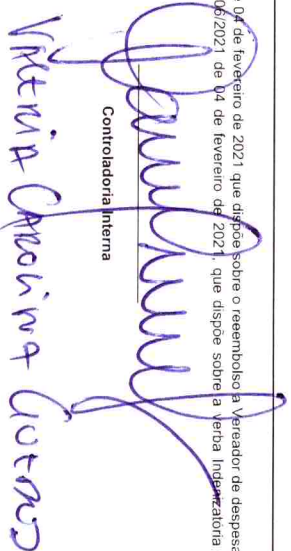 04 de fevereiro de 2021 que dispõe sobre o reeembolso a Vereador de despesa
06/2021 de 04 de fevereiro de 2021, que dispõe sobre a Verba Indenizatória
Controladoria Interna
Carolina